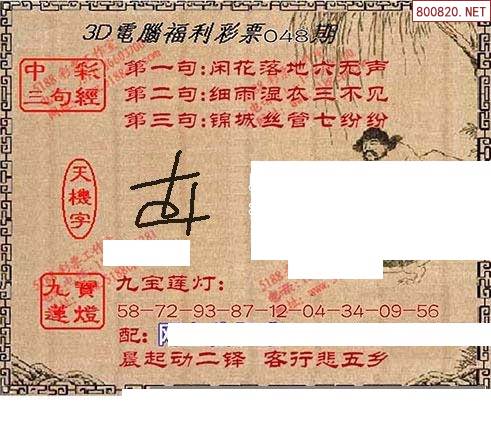 800820.NET
3D電腦福利彩票048期
中彩
三句經
第一句:闲花落地六无声
第二句:细雨湿衣三不见
第三句:锦城丝管七纷纷
天機字
九寶
蓮燈
九宝莲灯:
58-72-93-87-12-04-34-09-56
配:
晨起动二铎 客行悲五乡